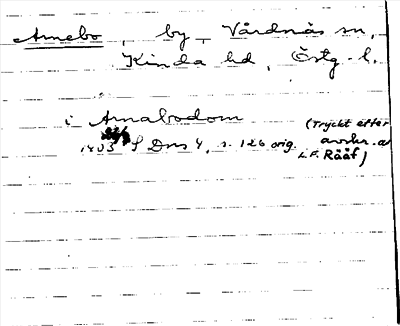 Arnebo, by, Vårdnäs sn,
Kinda hd, Östg. l.
i Arnabodom (Tryckt efter
1403 S Dns 4, s. 126 orig. avskr. av
L.F. Rääf)